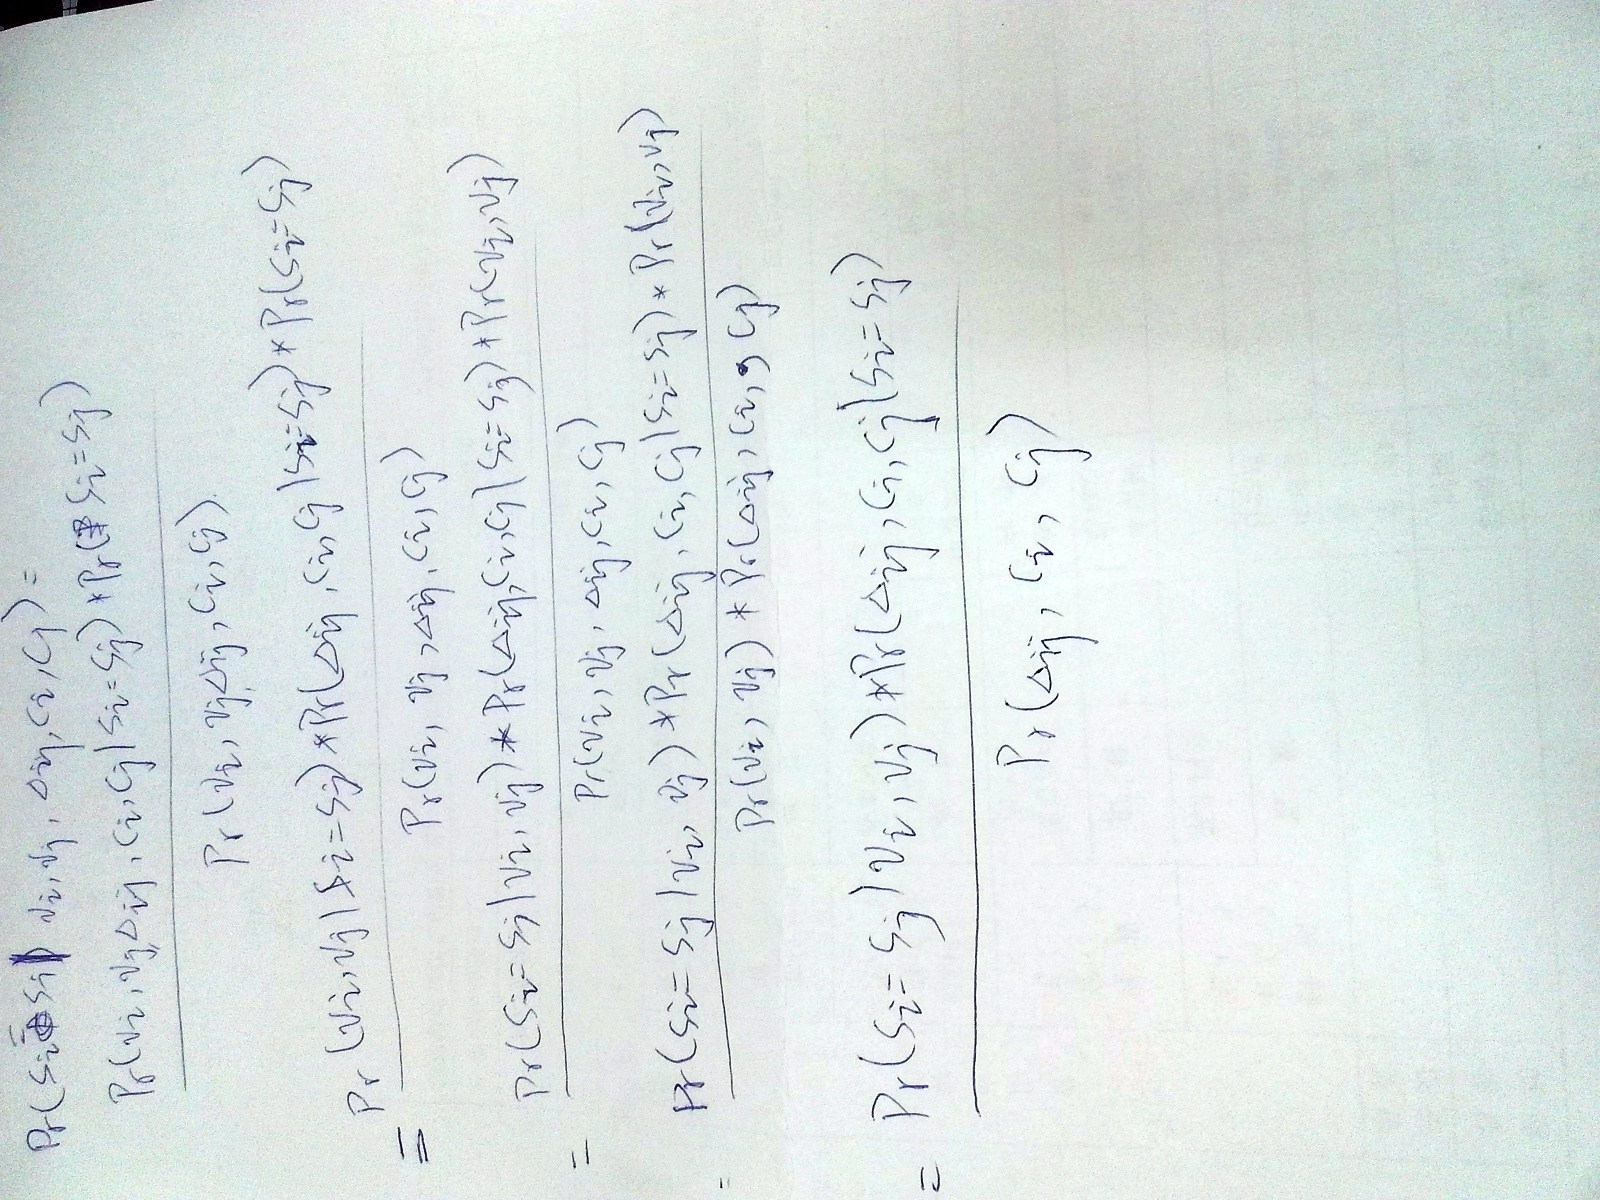 Pr(Si = Sj | vi, vj, Δij, ci, cj) =
Pr(vi, vj, Δij, ci, cj | Si = Sj) * Pr(Si = Sj)
Pr(vi, vj, Δij, ci, cj).
Pr(vi, vj | Si = Sj) * Pr(Δij, ci, cj | Si = Sj) * Pr(Si = Sj)
=
Pr(vi, vj, Δij, ci, cj)
Pr(Si = Sj | vi, vj) * Pr(Δij, ci, cj | Si = Sj) * Pr(vi, vj)
=
Pr(vi, vj, Δij, ci, cj)
Pr(Si = Sj | vi, vj) * Pr(Δij, ci, cj | Si = Sj) * Pr(vi, vj)
=
Pr(vi, vj) * Pr(Δij, ci, cj)
Pr(Si = Sj | vi, vj) * Pr(Δij, ci, cj | Si = Sj)
=
Pr(Δij, ci, cj)